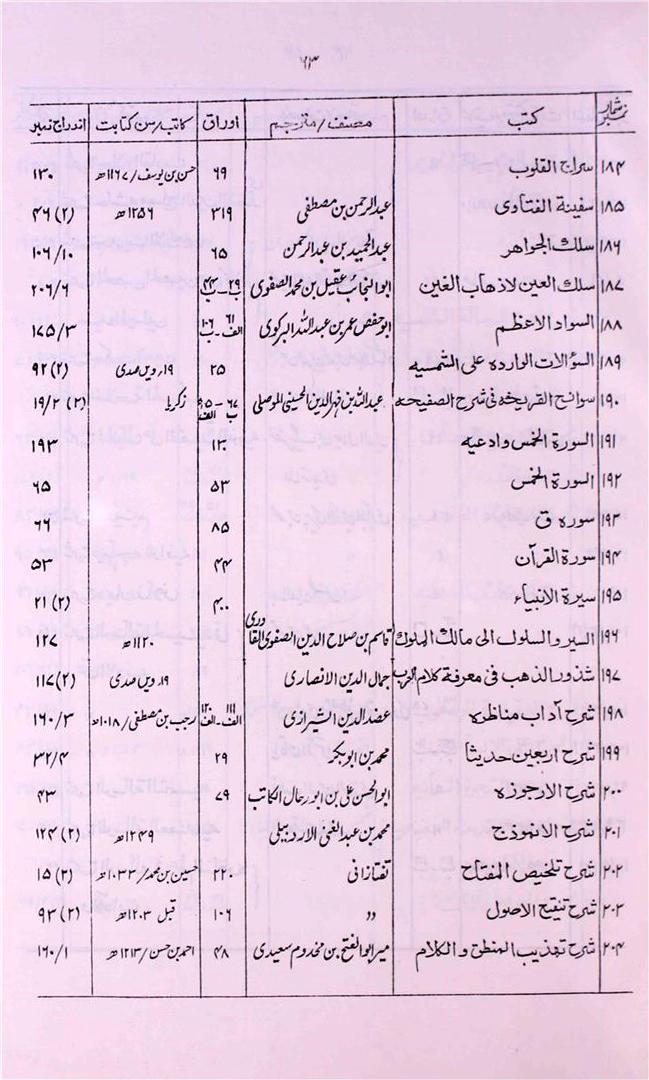 ۶۳
نمبر شمار | کتب | مصنف/مترجم | اوراق | کاتب/سن کتابت | اندراج نمبر
۱۸۴ | سراج القلوب | | ۶۹ | حسن بن یوسف/۱۱۶۷ھ | ۱۳۰
۱۸۵ | سفینۃ الفتاوی | عبدالرحمن بن مصطفی | ۳۱۹ | ۱۲۵۶ھ | ۴۶ (۲)
۱۸۶ | سلک الجواهر | عبدالحمید بن عبدالرحمن | ۶۵ | | ۱۰۶/۱۰
۱۸۷ | سلک العین لاذهاب الغین | ابوالنجاب عقیل بن محمد الصفوی | ۲۹ ب - ۴۳ ب | | ۲۰۶/۶
۱۸۸ | السواد الاعظم | ابوحفص عمر بن عبداللہ البرکوی | ۶۱ الف - ۱۰۶ ب | | ۱۷۵/۳
۱۸۹ | السؤالات الوارده علی الشمسیه | | ۲۵ | ۱۹ویں صدی | ۹۲ (۲)
۱۹۰ | سوانح القریحه فی شرح الصفیحه | عبداللہ بن فہر الدین الحسینی الموصلی | ۶۷ ب - ۹۵ الف | زکریا | ۱۹/۲ (۲)
۱۹۱ | السورة الخمس وادعیه | | ۱۲۰ | | ۱۹۳
۱۹۲ | السورة الخمس | | ۵۳ | | ۶۵
۱۹۳ | سوره ق | | ۸۵ | | ۶۶
۱۹۴ | سورة القرآن | | ۴۴ | | ۵۳
۱۹۵ | سیرة الانبیاء | | ۴۰۰ | | ۲۱ (۲)
۱۹۶ | السیر والسلوک الی مالک الملوک | قاسم بن صلاح الدین الصفوی القادری | | ۱۱۲۰ھ | ۱۲۷
۱۹۷ | شذور الذهب فی معرفة کلام العرب | جمال الدین الانصاری | | ۱۹ویں صدی | ۱۱۷ (۲)
۱۹۸ | شرح آداب مناظره | عضد الدین الشیرازی | ۱۱۱ الف - ۱۲۰ الف | رجب بن مصطفی/۱۰۱۸ھ | ۱۶۰/۳
۱۹۹ | شرح اربعین حدیثا | محمد بن ابوبکر | ۲۹ | | ۳۲/۴
۲۰۰ | شرح الارجوزه | ابوالحسن علی بن ابورعال الکاتب | ۷۹ | | ۴۳
۲۰۱ | شرح الانموذج | محمد بن عبدالغنی الاردبیلی | | ۱۲۴۹ھ | ۱۲۴ (۲)
۲۰۲ | شرح تلخیص المفتاح | تفتازانی | ۲۲۰ | حسین بن محمد/۱۰۳۳ھ | ۱۵ (۳)
۲۰۳ | شرح تنقیح الاصول | ״ | ۱۰۶ | قبل ۱۲۰۳ھ | ۹۳ (۲)
۲۰۴ | شرح تهذیب المنطق والکلام | میر ابوالفتح بن مخدوم سعیدی | ۴۸ | احمد بن حسن/۱۲۱۳ھ | ۱۶۰/۱